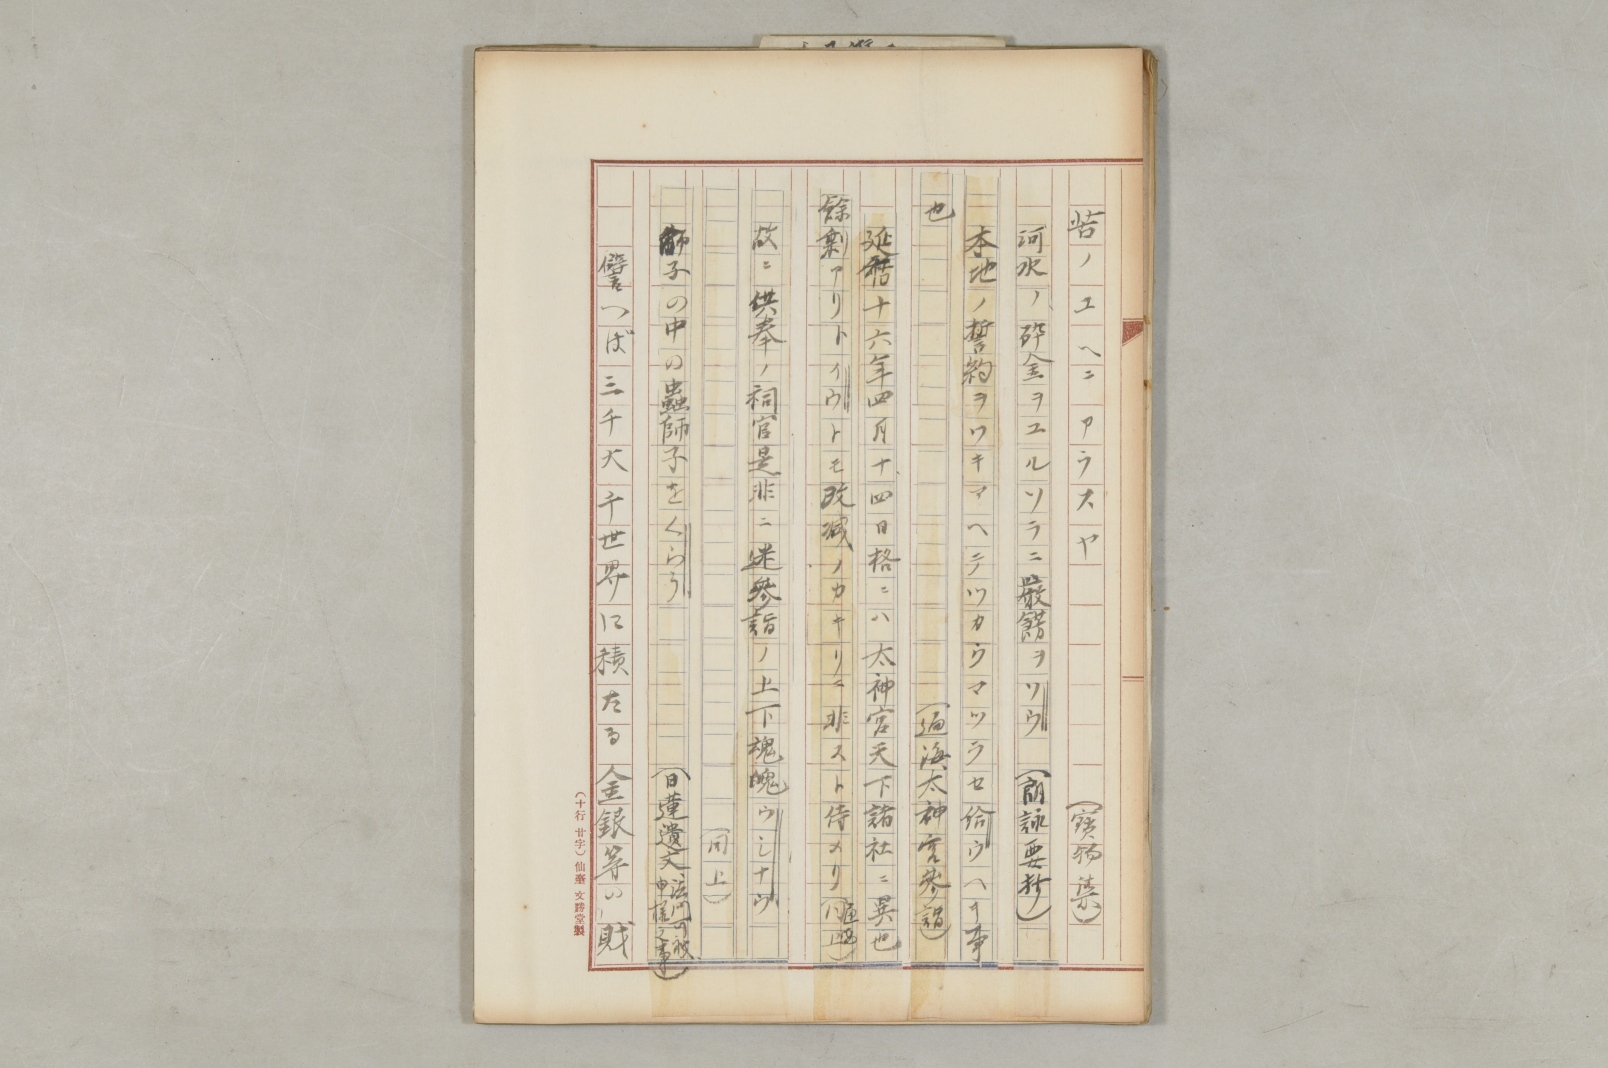 苦ノユヘニアラスヤ　（寶物集）
河水ノ砕金ヲユルソラニ嚴餝ヲソウ　（朗詠要抄）
本地ノ誓約ヲワキマヘテツカウマツラセ給ウヘキ事
也　（通海太神宮參詣）
延暦十六年四月十四日格ニハ太神宮天下諸社ニ異也
餘剰アリトイウトモ改減ノカキリニ非スト侍メリ（通海同上）
故ニ供奉ノ祠官是非ニ迷參詣ノ上下魂魄ウシナウ
（同上）
師子の中の蟲師子をくらう　（日蓮遺文、法門可被申樣之事）
譬へば三千大千世界に積たる金銀等の財
（十行 廿字）仙臺 文勝堂製